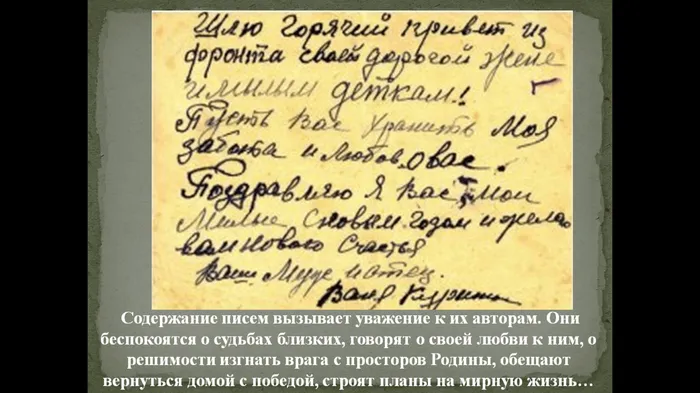 Шлю горячий привет из
фронта своей дорогой жене
и милым деткам!
Пусть Вас хранить Моя
забота и Любов, о вас.
Поздравляю Я Вас, мои
Милые, с новым годом и желаю
вам нового счастья
Ваш Муж и отец.
Ваня
Содержание писем вызывает уважение к их авторам. Они
беспокоятся о судьбах близких, говорят о своей любви к ним, о
решимости изгнать врага с просторов Родины, обещают
вернуться домой с победой, строят планы на мирную жизнь…